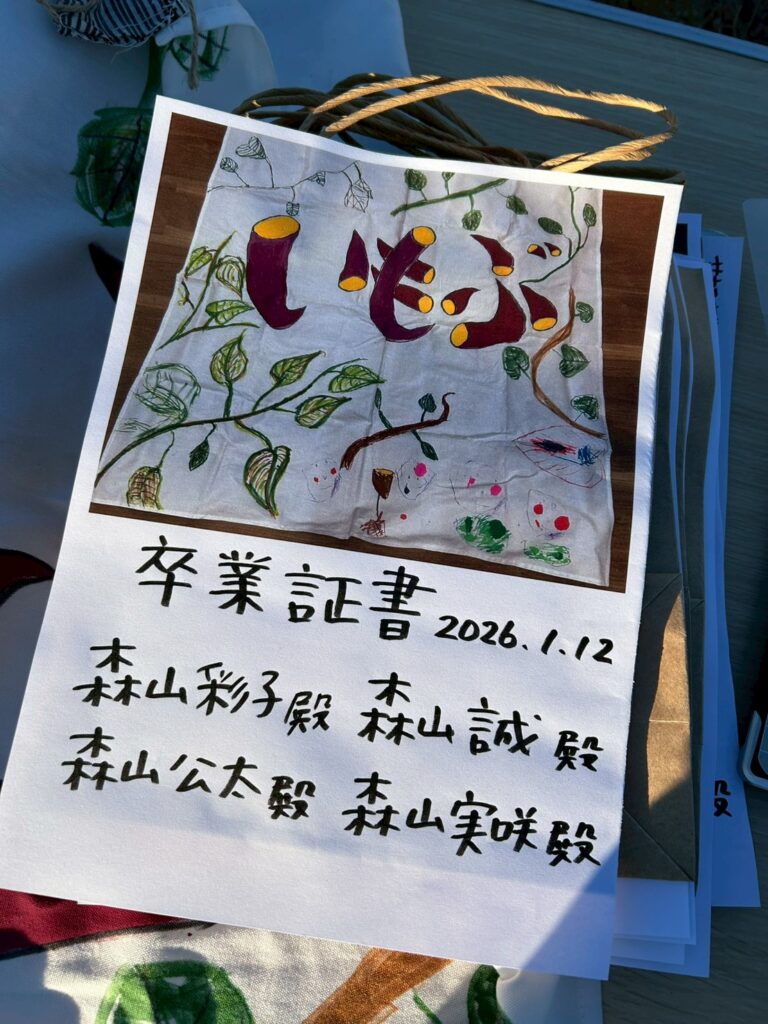 いもぶ
卒業証書 2026.1.12
森山彩子殿 森山誠殿
森山公太殿 森山実咲殿
殿